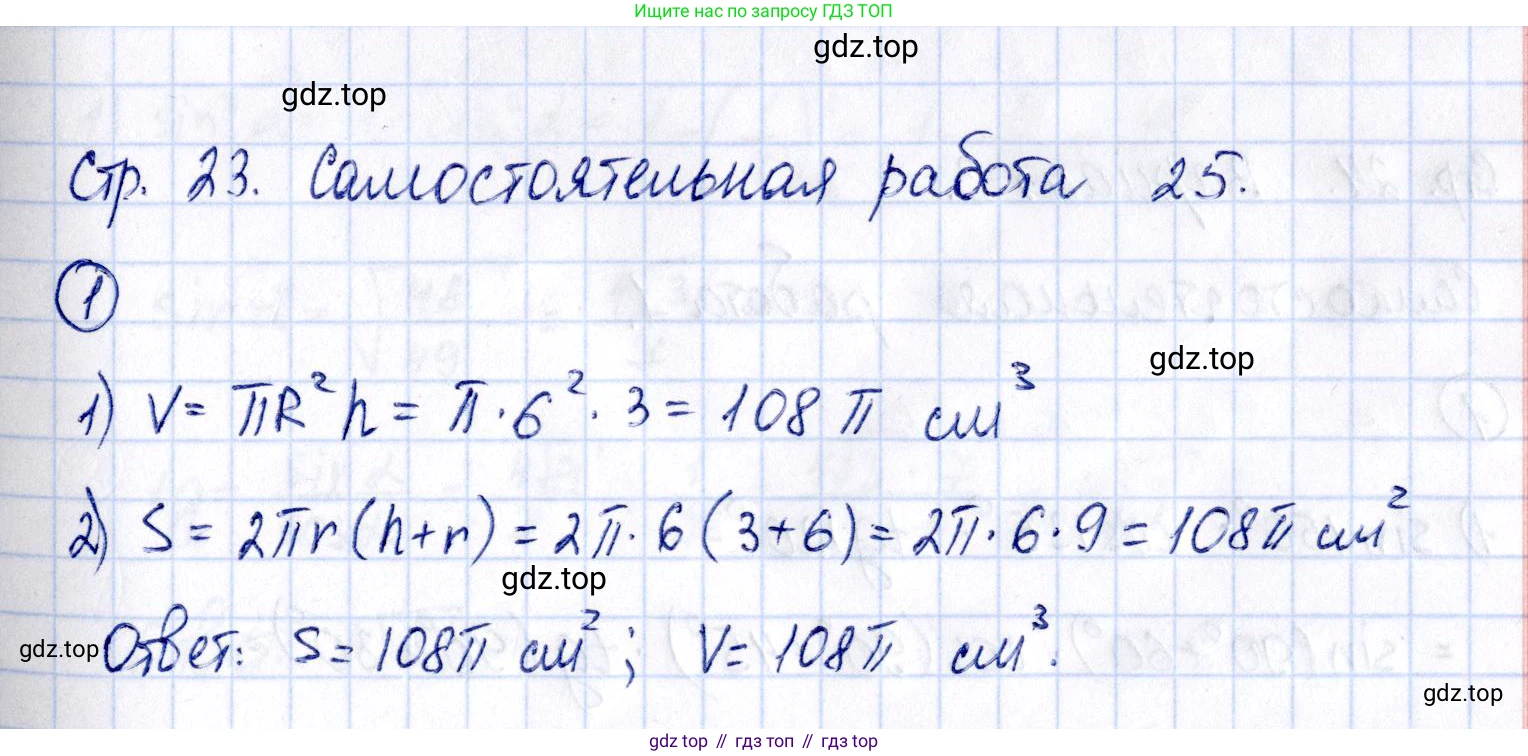 Ищите нас по запросу ГДЗ ТОП
gdz.top
gdz.top
Стр. 23. Самостоятельная работа 25.
1
gdz.top
1) V = πR²h = π · 6² · 3 = 108 π см³
2) S = 2πr(h+r) = 2π · 6 (3+6) = 2π · 6 · 9 = 108π см²
gdz.top
gdz.top
Ответ: S = 108π см²; V = 108π см³.
gdz.top
gdz.top // гдз топ // gdz top